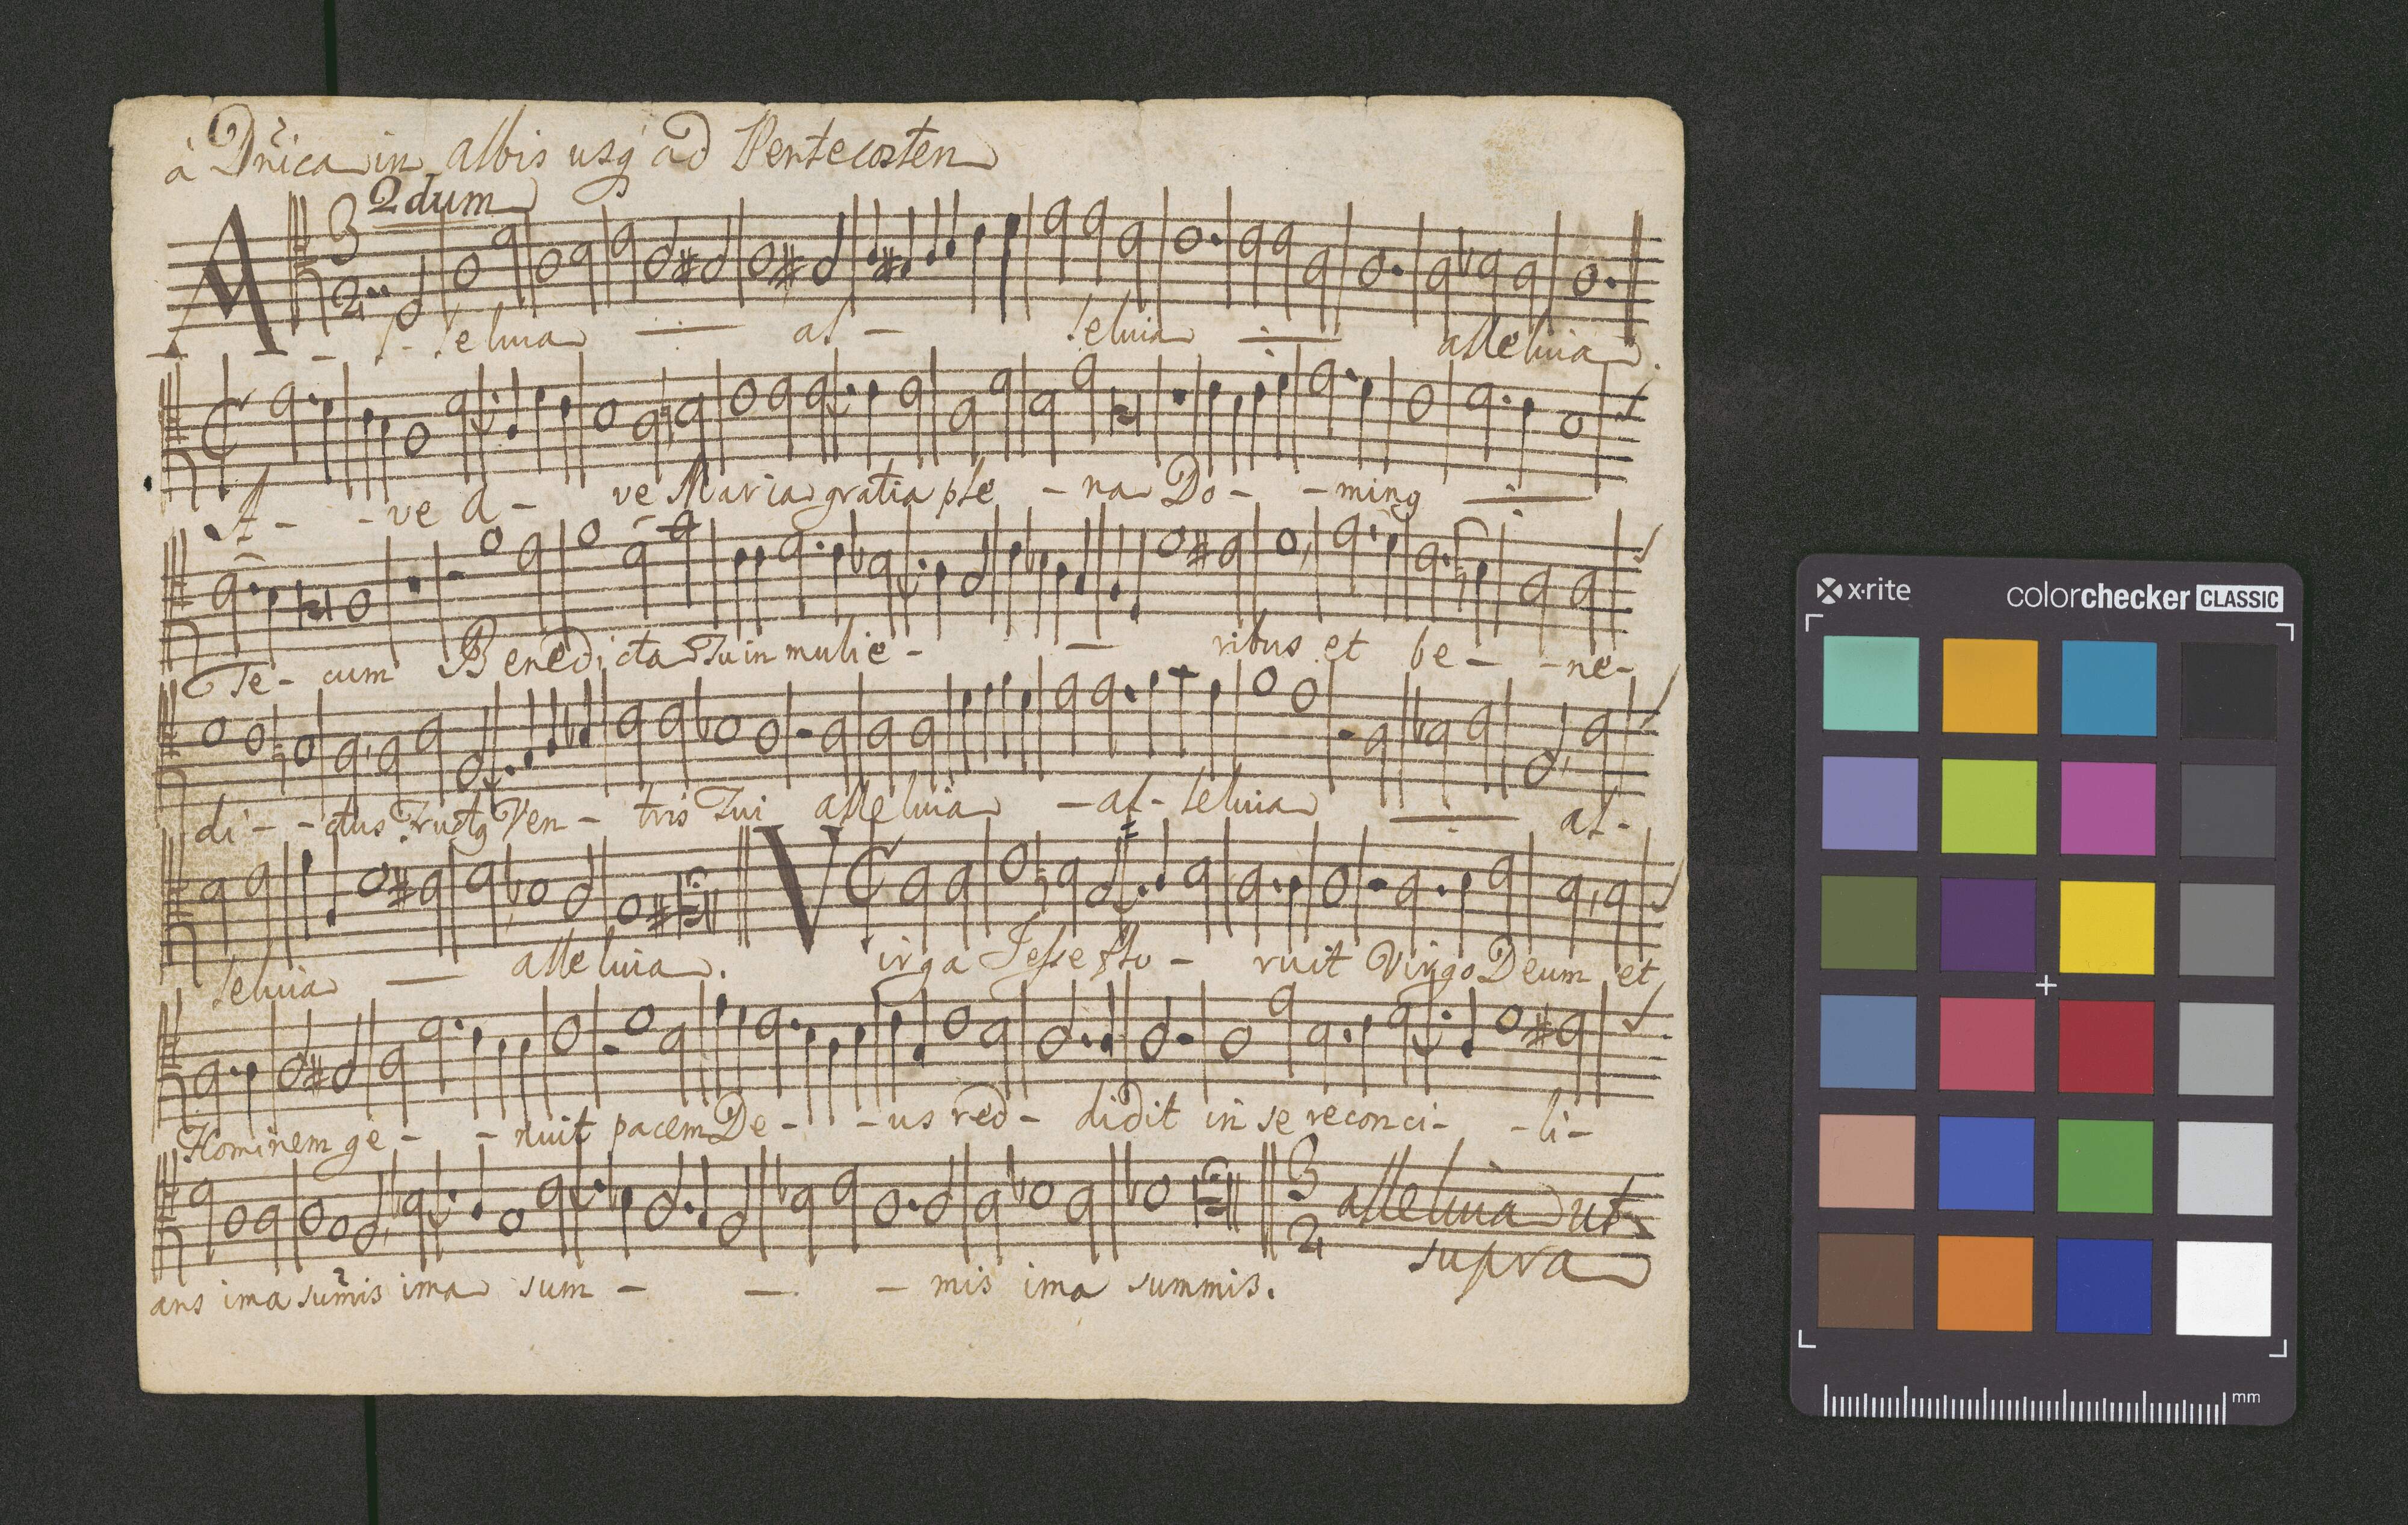 à Dñica in albis usq ad Pentecosten
2dum
3
2
A l - leluia al - leluia alleluia.
A - - ve a - ve Maria gratia ple - na Do - - ming
Te - cum Benedicta Tu in mulie - ribus et be - - ne -
di - - ctus Fructg Ven - tris Tui alleluia - al - leluia al -
leluia alleluia. Virga Jesse flo - ruit Virgo Deum et
Hominem ge - - nuit pacem De - - us red - didit in se reconci - - li -
3
2
alleluia ut
supra
ans ima sum̃is ima sum - - mis ima summis.
x·rite
colorchecker CLASSIC
mm